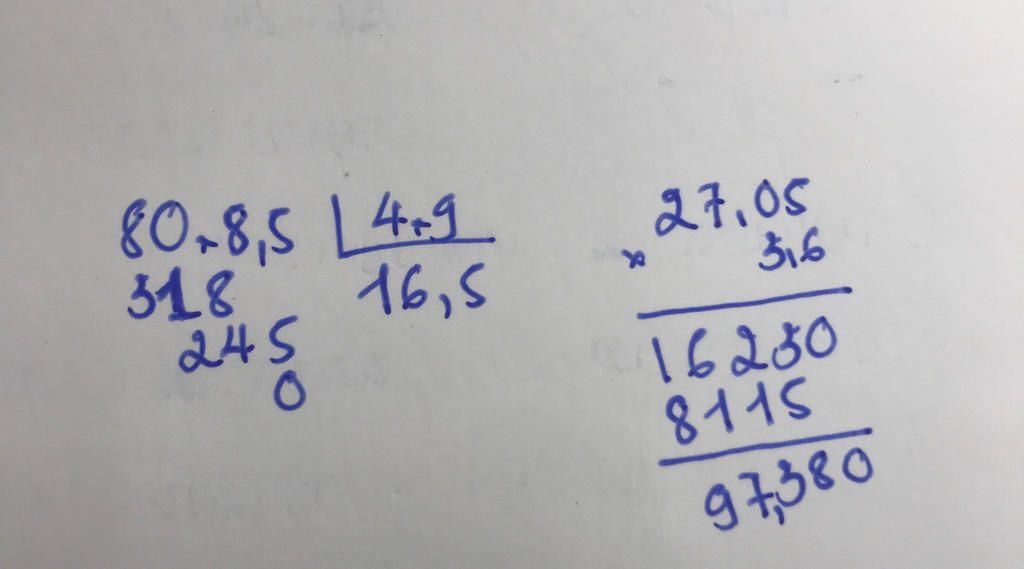 80,8,5 4,9
318 16,5
245
0
27,05
× 3,6
16230
8115
97,380